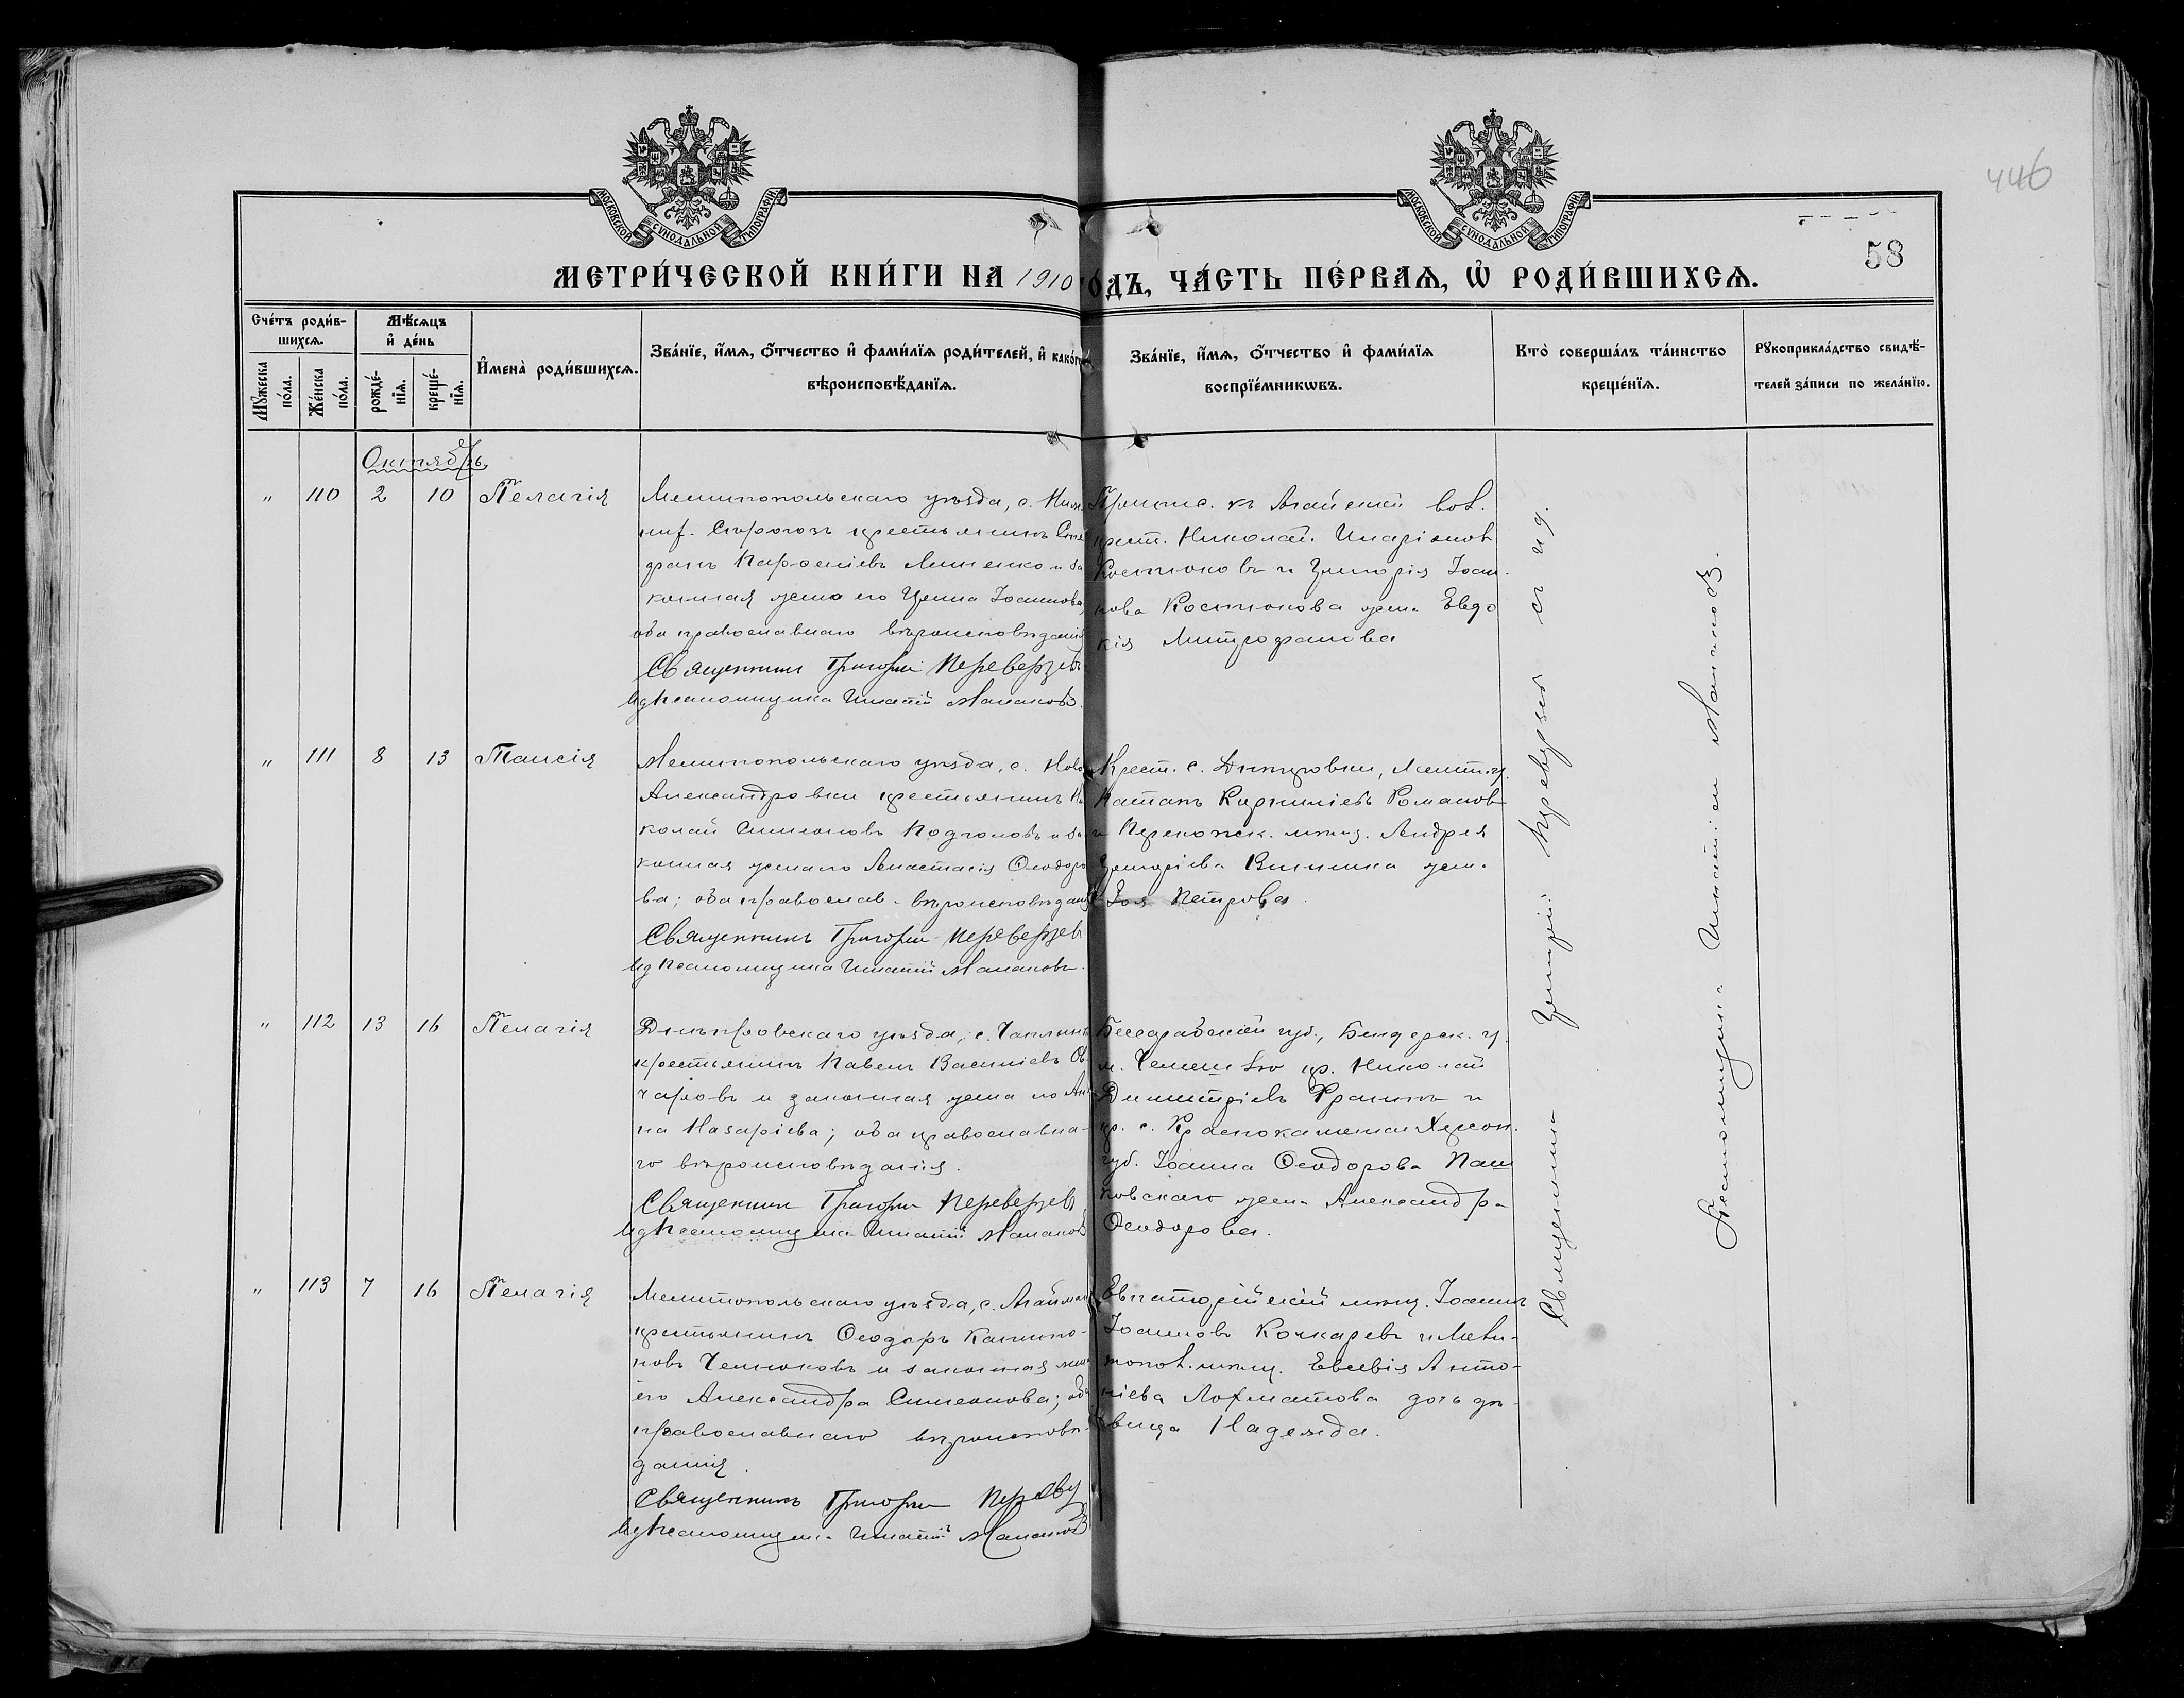 446
58
МОСКОВСКОЙ СѴНОДАЛЬНОЙ ТИПОГРАФІИ.
МОСКОВСКОЙ СѴНОДАЛЬНОЙ ТИПОГРАФІИ.
МЕТРИ́ЧЕСКОЙ КНИ́ГИ НА 1910 ГО́ДЪ, ЧА́СТЬ ПЕ́РВАѦ, Ѡ҆ РОДИ́ВШИХСѦ.
Сче́тъ роди́в-
шихсѧ.
Мꙋ́жеска по́ла.
Же́нска по́ла.
Мѣ́сѧцъ
и҆ де́нь
рожде́-
нїѧ.
креще́-
нїѧ.
И҆мена̀ роди́вшихсѧ.
Зва́нїе, и҆́мѧ, ѻ҆́тчество и҆ фами́лїѧ роди́телей, и҆ како́гѡ
вѣроисповѣ́данїѧ.
Зва́нїе, и҆́мѧ, ѻ҆́тчество и҆ фами́лїѧ
воспрїе́мникѡвъ.
Кто̀ соверша́лъ та́инство
креще́нїѧ.
Рꙋкоприкла́дство свидѣ́-
телей за́писи по жела́нїю.
Октябрь
" 110 2 10 Пелагія
Мелитопольскаго уѣзда, с. Ниж.
Сѣрогозъ крестьянинъ Сте
фанъ Парѳеніевъ Линенко и за
конная жена его Ирина Іоаннова,
оба православнаго вѣроисповѣданія
Священникъ Григорій Переверзевъ
И д Псаломщика Игнатій Малановъ.
к. Агайской вол.
крест. Николай Иларіонов
Костюковъ и Григорія Іоан
нова Костюкова жена Евдо
кія Митрофанова
" 111 8 13 Таисія
Мелитопольскаго уѣзда, с. Ново
Александровки крестьянинъ Ни
колай Симеоновъ Подгоновъ и за
конная жена его Анастасія Ѳеодоро
ва; оба православ. вѣроисповѣданія
Священникъ Григорій Переверзевъ
И д Псаломщика Игнатій Малановъ
Крест. с. Дмитровки, Мелит. у.
Романов
и Перекопск. мѣщ. Андрея
Григоріева Вишника жена
Зоя Петрова.
" 112 13 16 Пелагія
Днѣпровскаго уѣзда, с. Чаплинк
крестьянинъ Павелъ Василіевъ Ов
чаровъ и законная жена его Ан
на Назаріева; оба православна-
го вѣроисповѣданія.
Священникъ Григорій Переверзевъ
И д Псаломщика Игнатій Малановъ
Бессарабской губ., Бендерск. у.
м. кр. Николай
Димитріевъ Франкъ и
кр. с. Краснокаменки Херсон.
губ. Іоанна Ѳеодорова Паш
ковскаго жена Александра
Ѳеодорова.
" 113 7 16 Пелагія
Мелитопольскаго уѣзда, с. Агайман
крестьянинъ Ѳеодоръ Каллино-
ковъ Челноковъ и законная жена
его Александра Симеонова; оба
православнаго вѣроисповѣ-
данія.
Священникъ Григорій
И д Псаломщика Игнатій Малановъ
Евпаторійскій мѣщ. Іоаннъ
Іоанновъ Кочкаревъ и Мели-
топол. мѣщ. Евсевія Анто-
ніева Лохматова дочь дѣ-
вица Надежда.
Священникъ Григорій Переверзевъ и и. д.
Псаломщика Игнатій Малановъ.